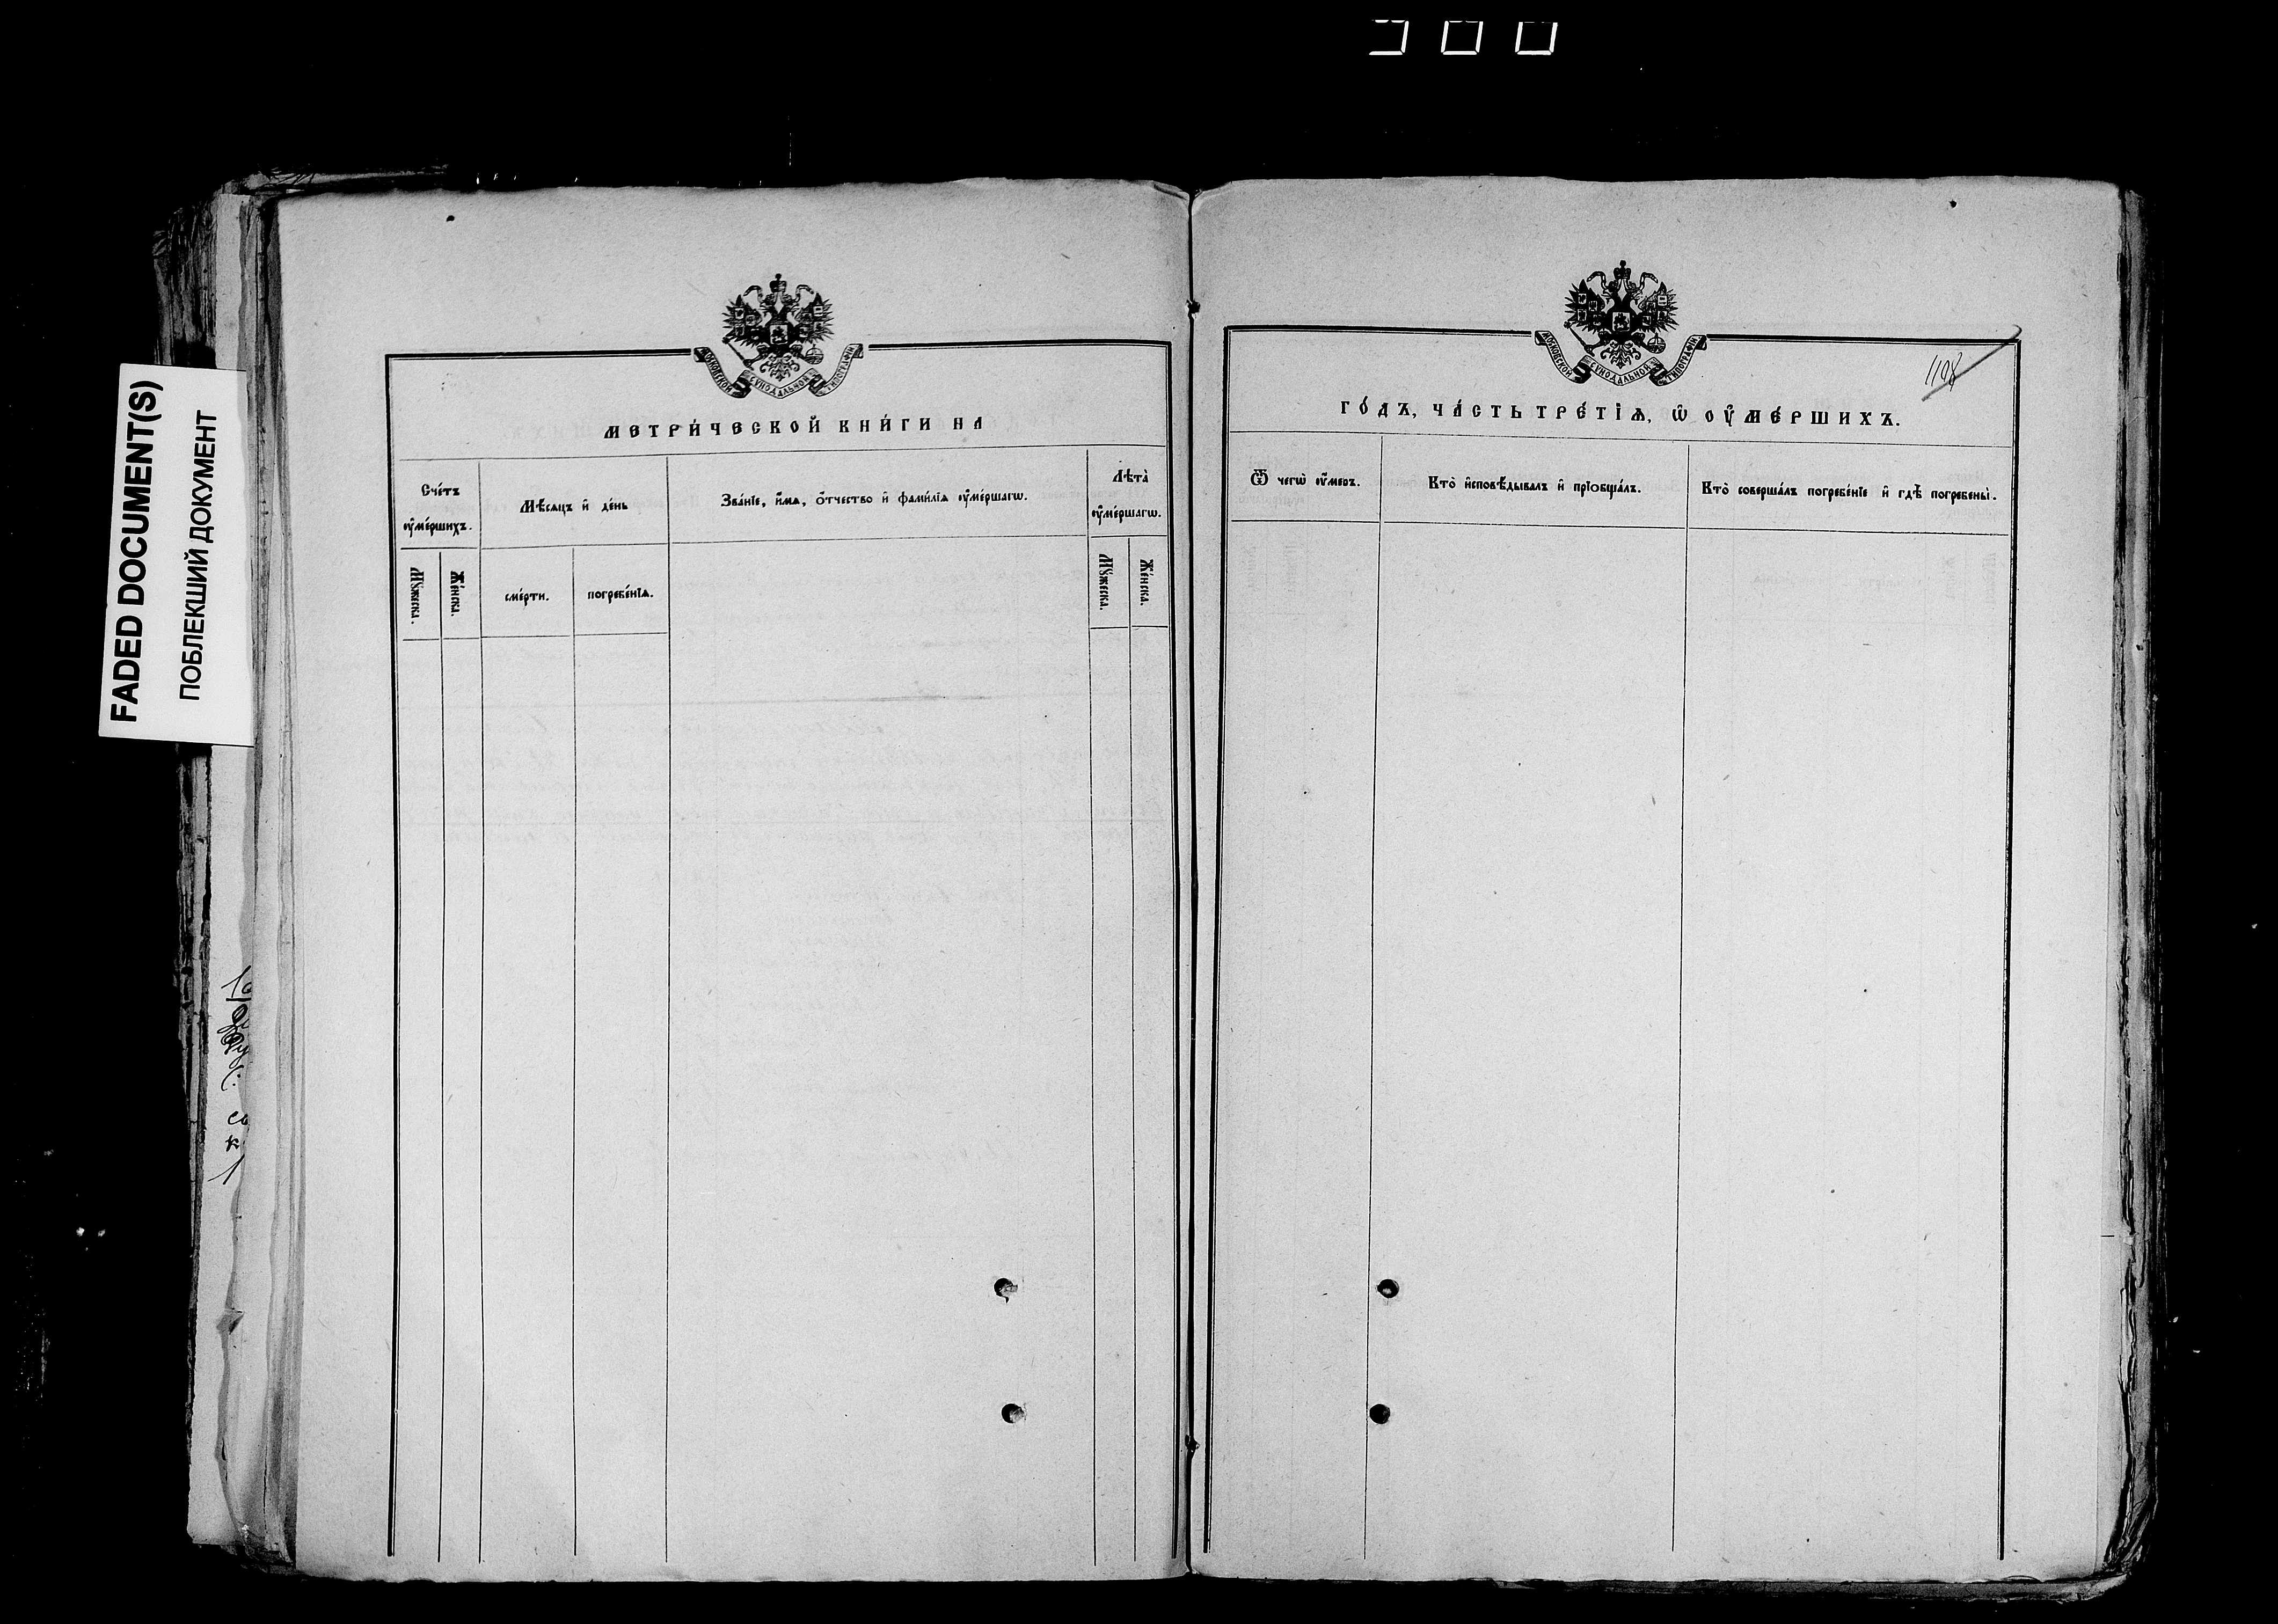 FADED DOCUMENT(S)
ПОБЛЕКШИЙ ДОКУМЕНТ
МОСКОВСКОЙ СѴНОДАЛЬНОЙ ТИПОГРАФІИ
МЕТРИ́ЧЕСКОЙ КНИ́ГИ НА
Сче́тъ
ᲂу҆ме́ршихъ.
Мѣ́сѧцъ и҆ де́нь
Зва́нїе, и҆́мѧ, ѻ҆́тчество и҆ фами́лїѧ ᲂу҆ме́ршагѡ.
Лѣта̀
ᲂу҆ме́ршагѡ.
Мꙋ́жеска.
Же́нска.
сме́рти.
погребе́нїѧ.
Мꙋ́жеска.
Же́нска.
МОСКОВСКОЙ СѴНОДАЛЬНОЙ ТИПОГРАФІИ
ГО́ДЪ, ЧА́СТЬ ТРЕ́ТІѦ, Ѡ҆ ОУ҆МЕ́РШИХЪ.
Ѿ чегѡ̀ ᲂу҆́меръ.
Кто̀ и҆сповѣ́дывалъ и҆ прїѡбща́лъ.
Кто̀ соверша́лъ погребе́нїе и҆ гдѣ̀ погребены̀.